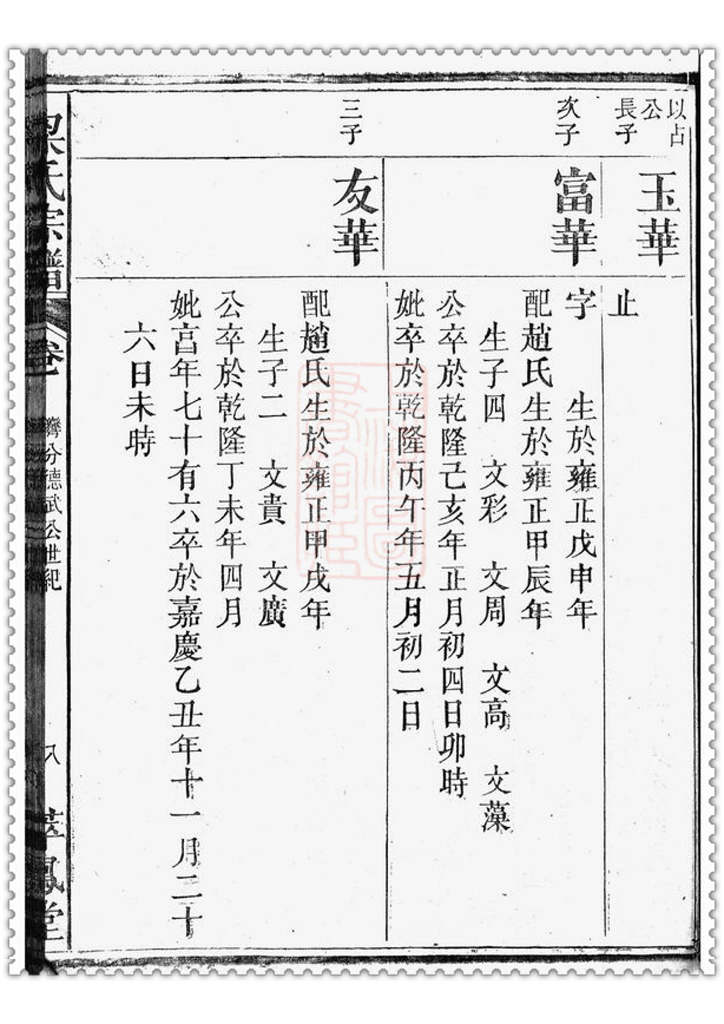 以占
公
長子
玉華
止
次子
富華
字　生於雍正戊申年
配趙氏生於雍正甲辰年
生子四　文彩　文周　文高　文藻
公卒於乾隆己亥年正月初四日卯時
妣卒於乾隆丙午年五月初二日
三子
友華
配趙氏生於雍正甲戌年
生子二　文貴　文廣
公卒於乾隆丁未年四月
妣亯年七十有六卒於嘉慶乙丑年十一月二十
六日未時
梁氏宗譜
卷
濟分德武公世紀
八
鳳堂